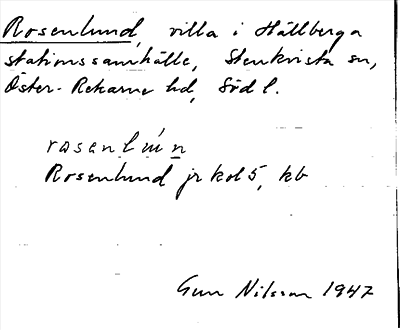 Rosenlund, villa i Hällberga
stationssamhälle, Stenkvista sn,
Öster-Rekarne hd, Södl.
Rosenlund jr kol 5, kb
Gun Nilsson 1947